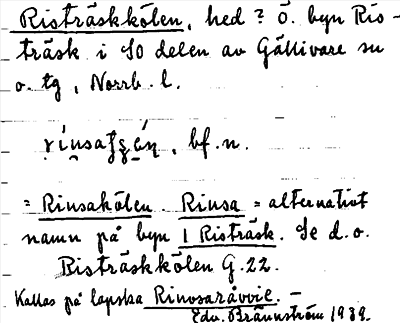 Risträskkölen, hed? ö. byn Ris-
träsk i SO delen av Gällivare sn
o. tg, Norrb. l.
bf. n.
= Rinsakölen. Rinsa = alternativt
namn på byn 1 Risträsk. Se d.o.
Risträskkölen G.22.
Kallas på lapska Rinosaråvvie. -
Edv. Brännström 1939.